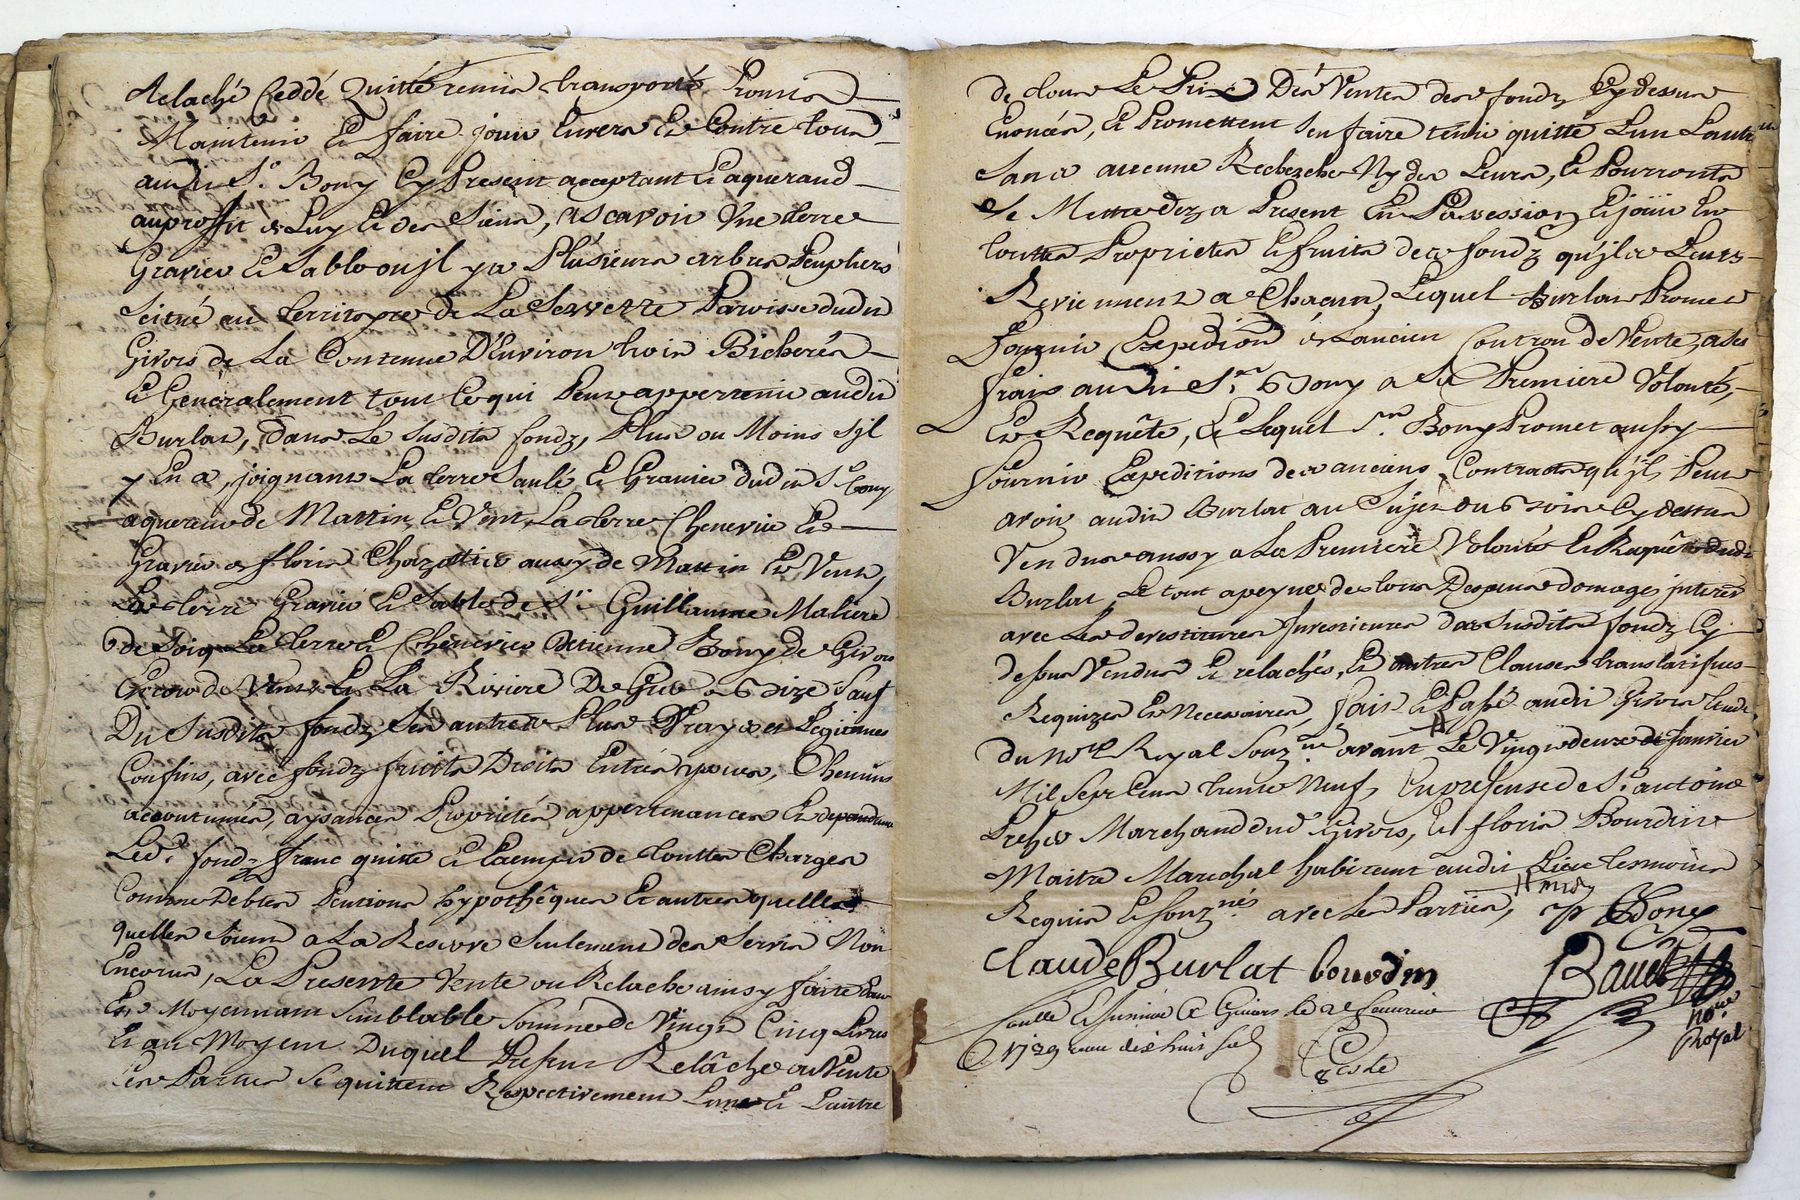 Relaché Ceddé Quitté remis transporté Promis
Maintenir Et faire jouir Envers Et Contre tous
audit Sr. Bony Cy Present acceptant Et aquerand
auproffit de Luy Et des Siens, ascavoir Une terre
Gravier Et Sable ou jl ya Plusieurs arbres Peupliers
Scitué au territoyre de La Servette Paroisse dudit
Givors de La Contenue D'Environ trois Bicherés
Et Generalement tout Ce qui Peut appertenir audit
Burlat, dans Le Susdits fondz, Plus ou Moins Sjl
y En a, joignant La terre Saulé Et Gravier dudit Sr. Bony
aquereur de Mattin Et Vent, La terre Chenevier Et
Gravier de floris Chazottier aussy de Mattin Et Vent,
La terre Gravier Et Sable de Sr. Guillaume Maliere
de Soir La terre Et Chenevier Detienne Bony de Givors
Encore de Vent Et La Riviere De Gier de Bize Sauf
Du Susdits fondz Ses autres Plus Vrayes et Legitimes
Confins, avec fondz fruits Droits Entrés ysues, Chemins
accoutumés, aysances Proprietés appertenances Et dependances
Led. fondz franc quitte Et Exempts de touttes Charges
Comme Debtes Pentions hypothêques Et autres quelles
quelles Soient a La Reserve Seulement des Servis Non
Encorus, La Presente Vente ou Relache ainsy faite
Et Moyennant Semblable Somme de Vingt Cinq Livres
Et au Moyen Duquel Presens Relâche ou Vente
Les Parties Se quittent Respectivement Lune Et Lautre
de tour Le Prix Des Ventes des fondz Cydessus
Enoncés, Et Promettent Sen faire tenir quitte Lun Lautre
Sans aucune Recherche Ny des Leurs, Et Pourronts
Se Mettre dez a Present En Possession Et joüir En
touttes Proprietes Et fruits des fondz qu'jls Leurs
Reviennent a Chacun, Lequel Burlat Promet
fournir Expedition de Lancien Contrat de Vente, a Ses
frais audit Sr. Bony a Sa Premiere Volonté,
Et Requête, Et Lequel Sr. Bony Promet aussy
fournir Expeditions des anciens Contracts qu'jl Peut
avoir audit Burlat au Sujet du Bois Cy dessus
Vendus aussy a La Premiere Volonté Et Requête dudit
Burlat Le tout a peyne de tous Despens domages jnterets
avec Les devestitures Jnvestitures des Susdits fondz Cy
desus Vendus Et relachés, Et autres Clauses translatifves
Requizes Et Necessaires, fait Et Passé audit Givors
du Nore. Royal Souz.né avant Le Vingtdeux de Janvier
Mil Sept Cens trente Neuf, En presense de Sr. antoine
Marchand dud. Givors, Et floris Bourdin
Maitre Marechal habitant audit Lieu temoins
Requis Et Souz.nés avec Les Parties,
Bony
Claude Burlat bourdin
a Givors le
1739 dix huit
no.re
Royal